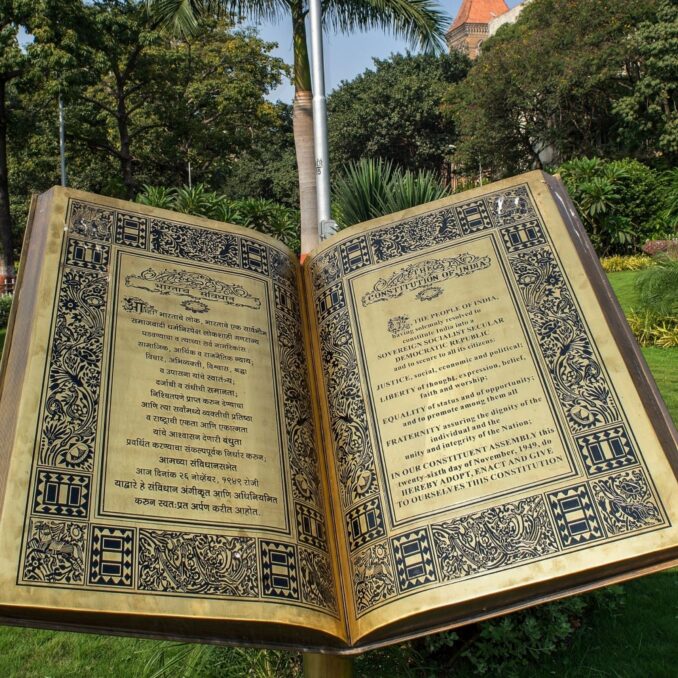 भारताचे संविधान
आम्ही भारताचे लोक, भारताचे एक सार्वभौम
समाजवादी धर्मनिरपेक्ष लोकशाही गणराज्य
घडवण्याचा व त्याच्या सर्व नागरिकांस:
सामाजिक, आर्थिक व राजनैतिक न्याय;
विचार, अभिव्यक्ती, विश्वास, श्रद्धा
व उपासना यांचे स्वातंत्र्य;
दर्जाची व संधीची समानता;
निश्चितपणे प्राप्त करुन देण्याचा
आणि त्या सर्वांमध्ये व्यक्तीची प्रतिष्ठा
व राष्ट्राची एकता आणि एकात्मता
यांचे आश्वासन देणारी बंधुता
प्रवर्धित करण्याचा संकल्पपूर्वक निर्धार करुन;
आमच्या संविधानसभेत
आज दिनांक २६ नोव्हेंबर, १९४९ रोजी
याद्वारे हे संविधान अंगीकृत आणि अधिनियमित
करुन स्वत:प्रत अर्पण करीत आहोत.
THE
CONSTITUTION OF INDIA
WE, THE PEOPLE OF INDIA,
having solemnly resolved to
constitute India into a
SOVEREIGN SOCIALIST SECULAR
DEMOCRATIC REPUBLIC
and to secure to all its citizens.
JUSTICE, social, economic and political;
LIBERTY of thought, expression, belief,
faith and worship;
EQUALITY of status and of opportunity;
and to promote among them all
FRATERNITY assuring the dignity of the
individual and the
unity and integrity of the Nation;
IN OUR CONSTITUENT ASSEMBLY this
twenty-sixth day of November, 1949, do
HEREBY ADOPT, ENACT AND GIVE
TO OURSELVES THIS CONSTITUTION